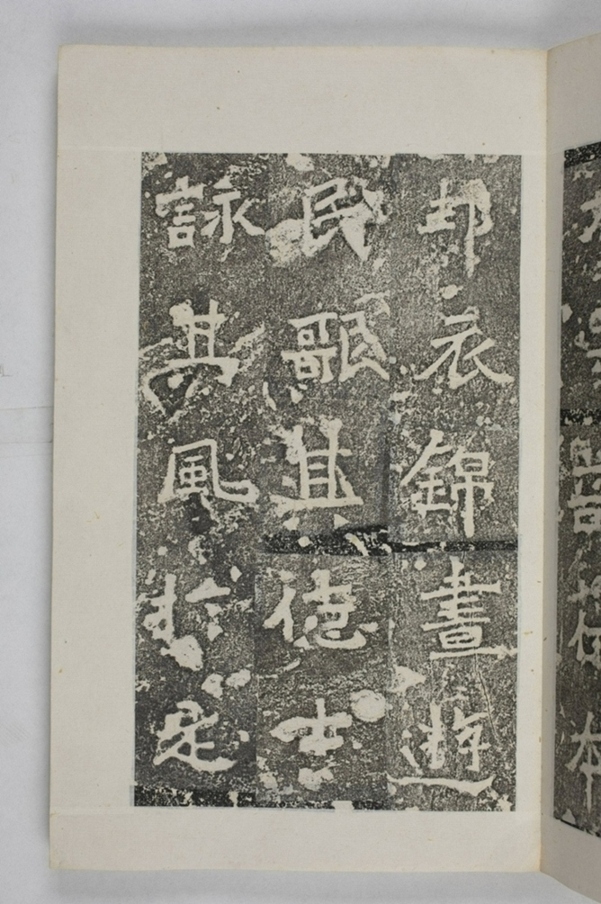 邦衣錦晝遊
民歌其德士
詠其風於是